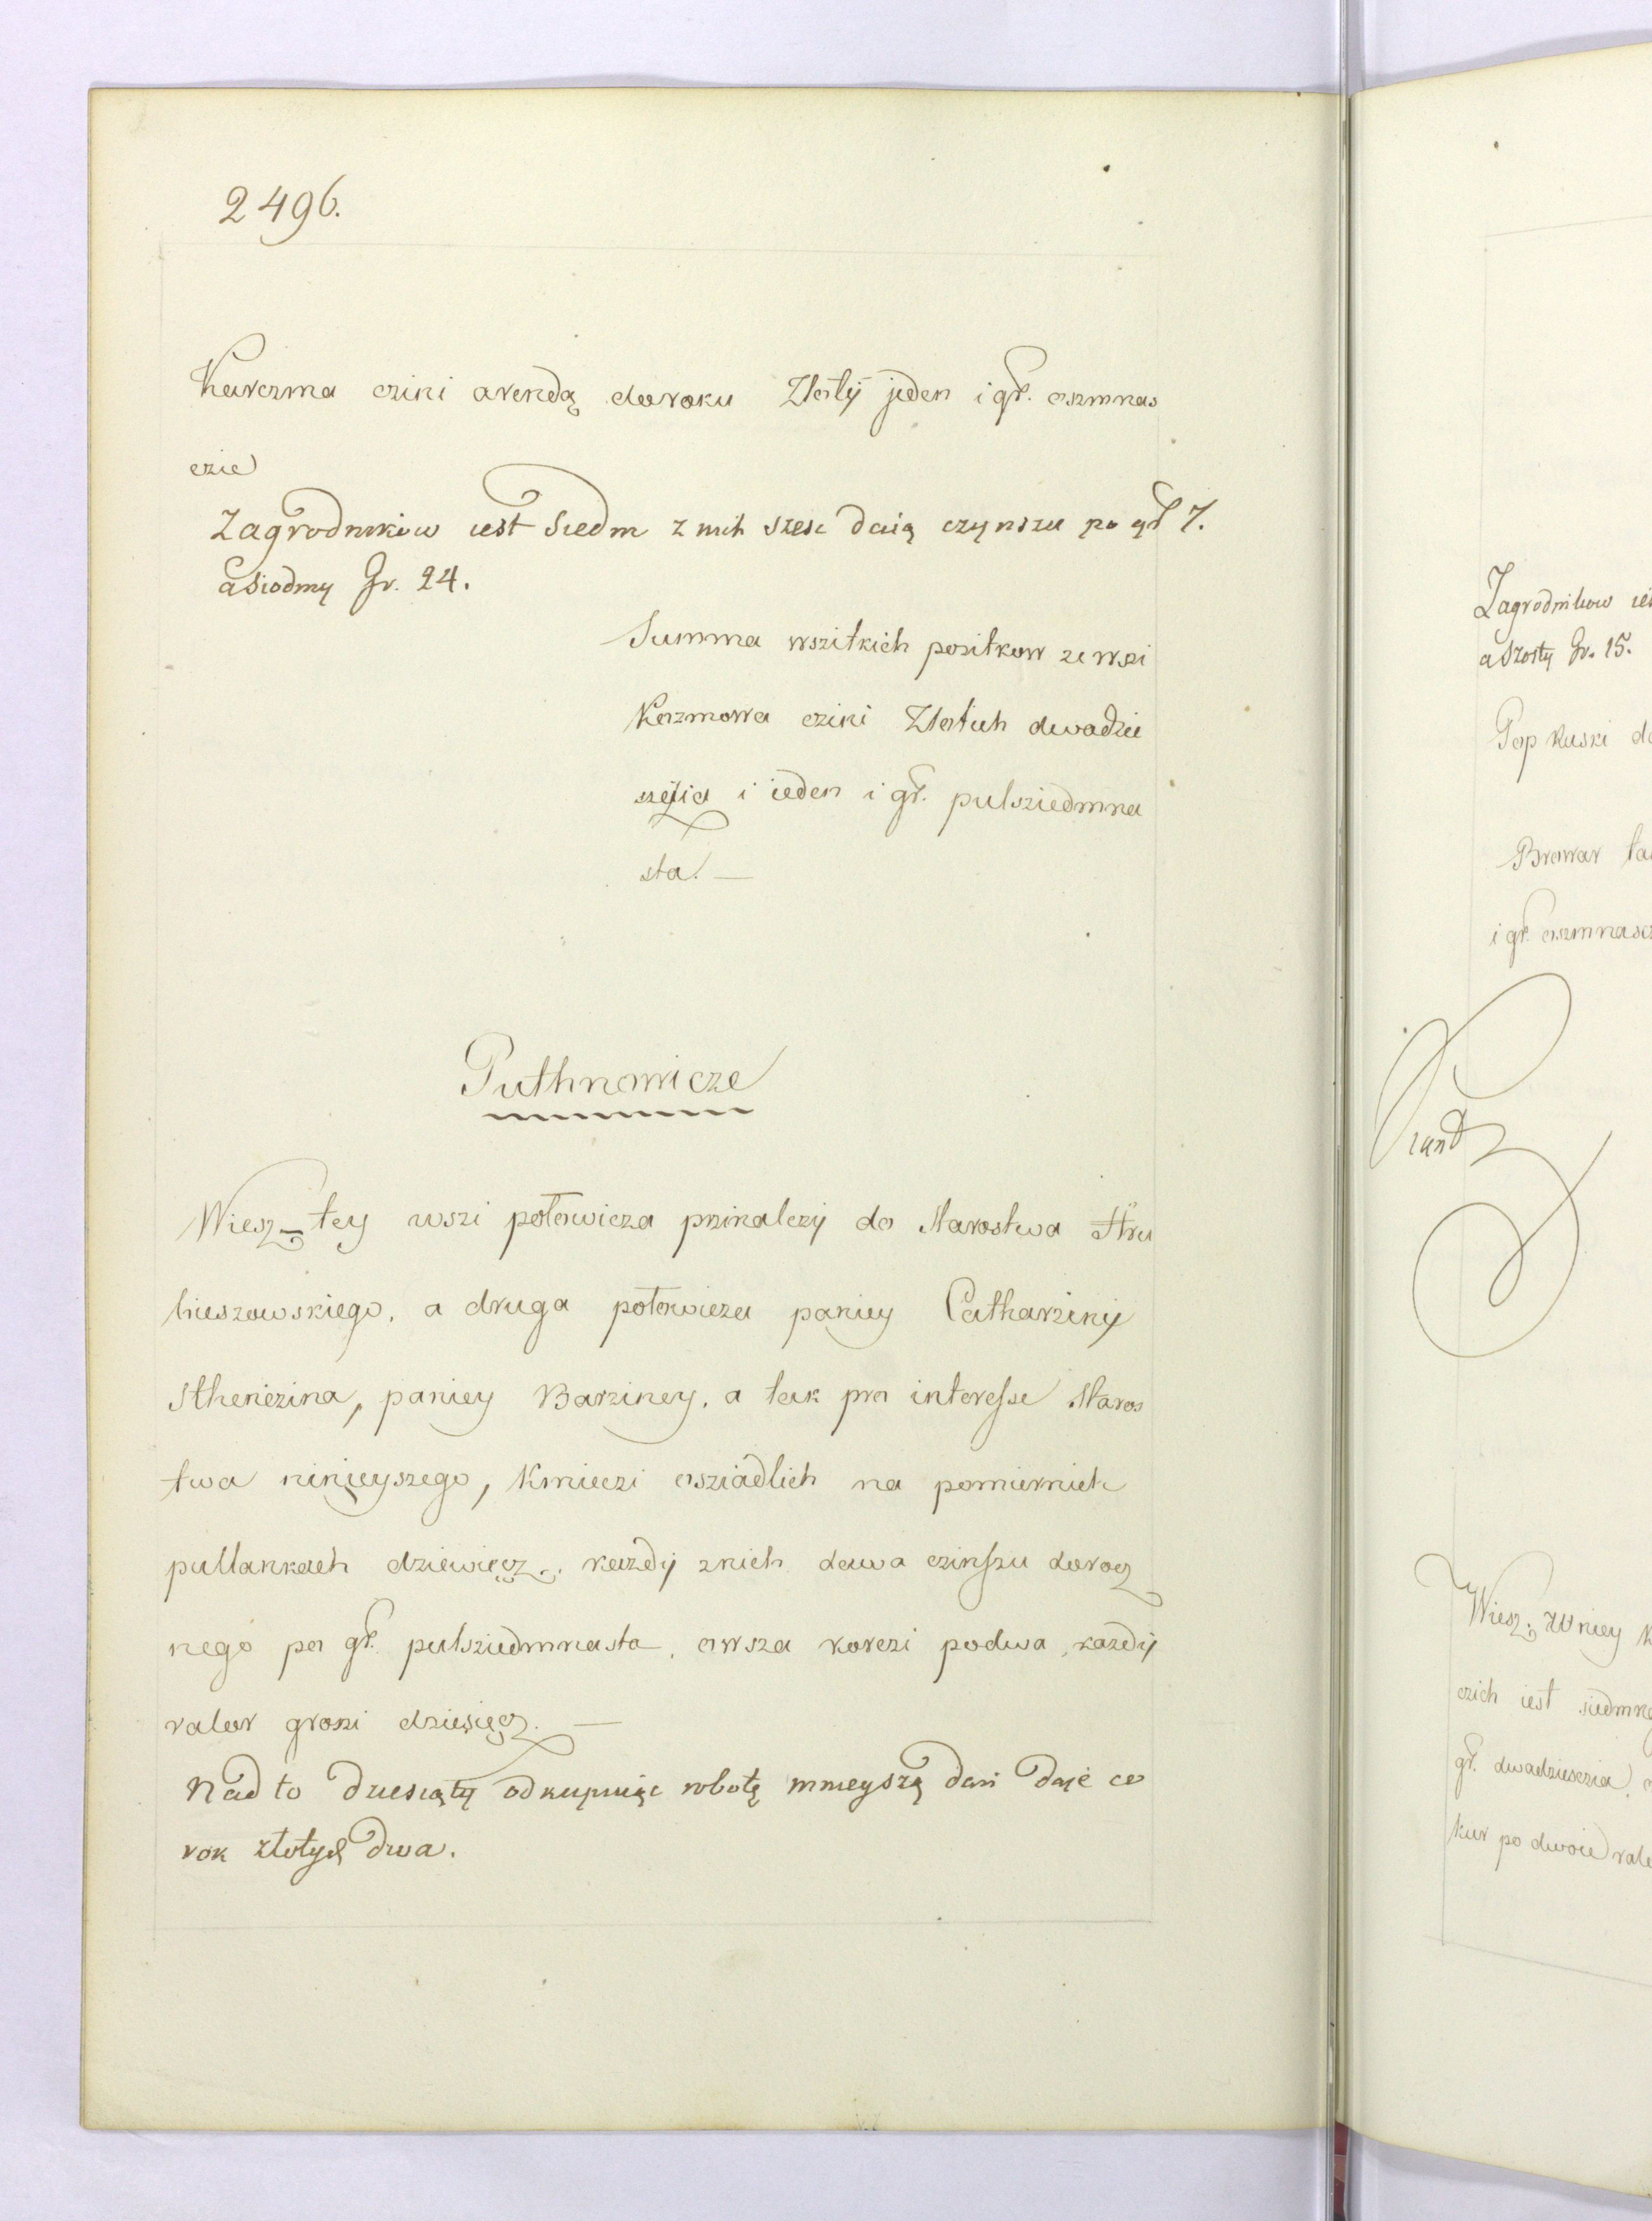 2496.
Karczma czini arendą do roku Złotij jeden i gr. oszmnas
czie
Zagrodnikow iest Siedm z nich szesc daią czynszu po gr 7.
a Siodmy Gr. 24.
Summa wszitkich pozitkow ze wszi
Kozmowa czini Złotich dwadzie
szczia i ieden i gr. pulsziedmna
sta. —
Puthnowicze
Wiesz — tey wszi połowicza przinalezij do Starostwa Hru
bieszowskiego, a druga połowicza paniey Catharzinij
Stheniczina, paniey Barziney, a tak pro interesse Staros
twa ninieyszego, Kmieczi osziadlich na pomiernich
pullankach dziewięcz, kazdij znich dawa czinszu dorocz
nego po gr. pulsziedmnasta, owsza korczi po dwa, kazdij
valor groszi dziesięcz. —
Nad to dziesiąty odkupuiąc robotę mnieyszą dań daie co
rok złotych dwa.
Zagrodnikow ies
a Szosty Gr. 15.
Pop Ruski d
Browar ta
i gr. oszmnasc
Grand
Wiesz. W niey K
czich iest siedmna
gr. dwadziesczia,
kur po dwoie val